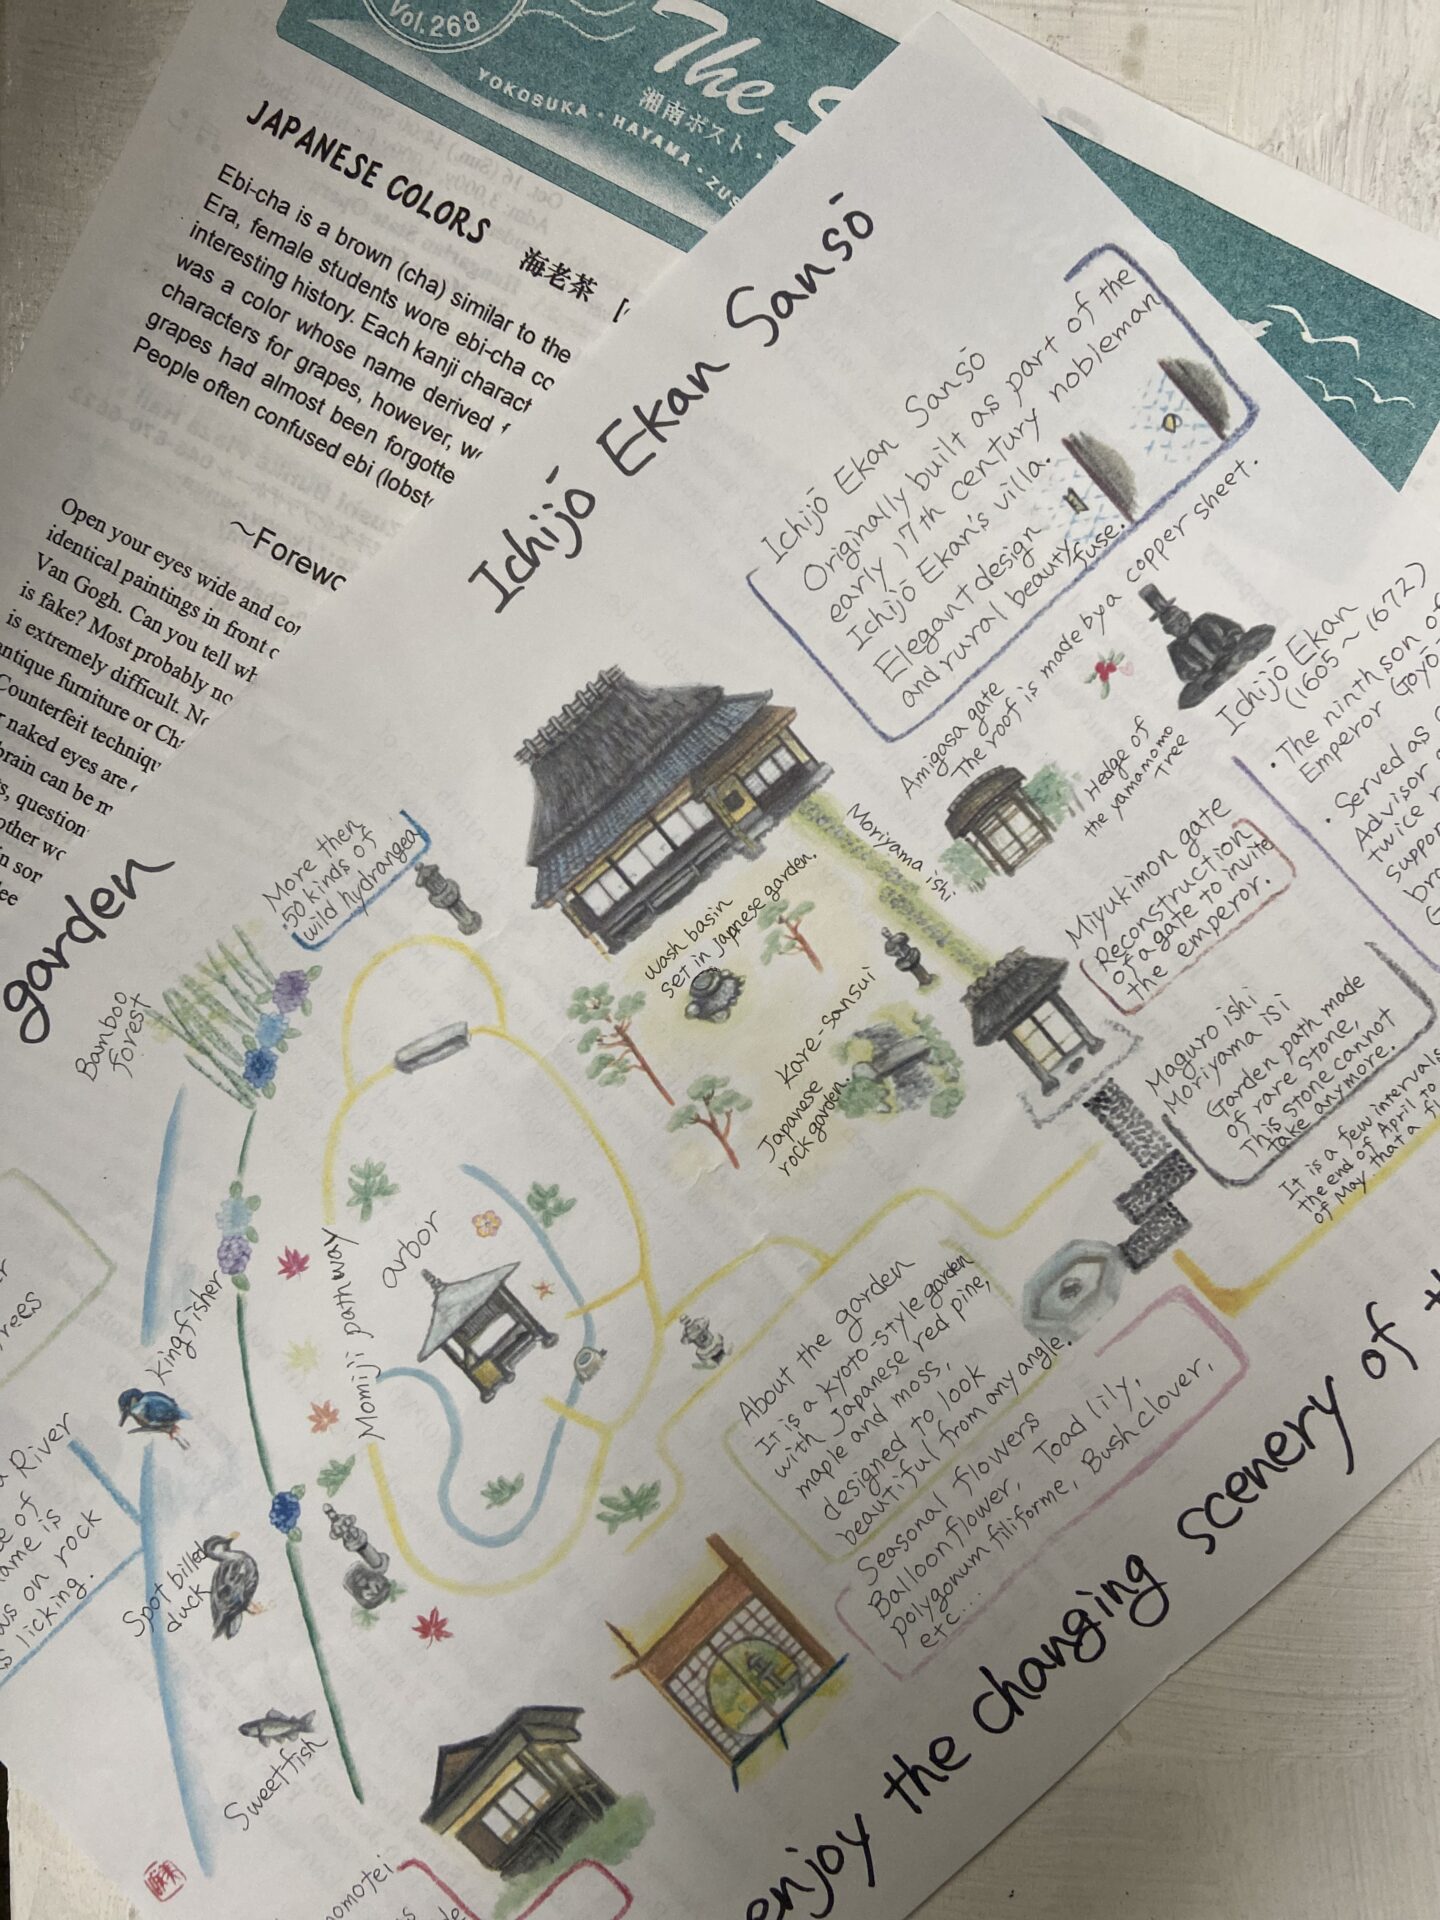 Vol.268
The S
湘南ポスト・
YOKOSUKA・HAYAMA・ZUS
JAPANESE COLORS 海老茶
Ebi-cha is a brown (cha) similar to the
Era, female students wore ebi-cha co
interesting history. Each kanji charact
was a color whose name derived f
characters for grapes, however, we
grapes had almost been forgotte
People often confused ebi (lobst
~Forewo
Open your eyes wide and co
identical paintings in front o
Van Gogh. Can you tell wh
is fake? Most probably no
is extremely difficult. No
antique furniture or Ch
Counterfeit techniqu
r naked eyes are
brain can be m
s, question
other wo
in sor
lee
Ichijō Ekan Sansō
Ichijō Ekan Sansō
Originally built as part of the
early 17th century nobleman
Ichijō Ekan's villa.
Elegant design
and rural beauty fuse.
Amigasa gate
The roof is made by a copper sheet.
Hedge of
the yamamomo
Tree
Ichijō Ekan
(1605~1672)
・The ninth son of
Emperor Goyō
・Served as
Advisor
twice
suppor
bro
Moriyama ishi
Miyukimon gate
Reconstruction
of a gate to invite
the emperor.
Maguro ishi
Moriyama isi
Garden path made
of rare stone,
This stone cannot
take anymore.
It is a few intervals
the end of April to
of May that a fl
wash basin
set in Japnese garden.
Kare-sansui
Japanese
rock garden.
More then
50 kinds of
wild hydrangea
garden
Bamboo
Forest
arbor
Momiji pathway
kingfisher
About the garden
It is a kyoto-style garden
with Japanese red pine,
maple and moss,
designed to look
beautiful from any angle.
Seasonal flowers
Balloonflower, Toad lily,
polygonum filiforme, Bush clover,
etc...
rees
a River
e of
ame is
ws on rock
s licking.
Spot billed
duck
Sweetfish
nomotei
enjoy the changing scenery of t